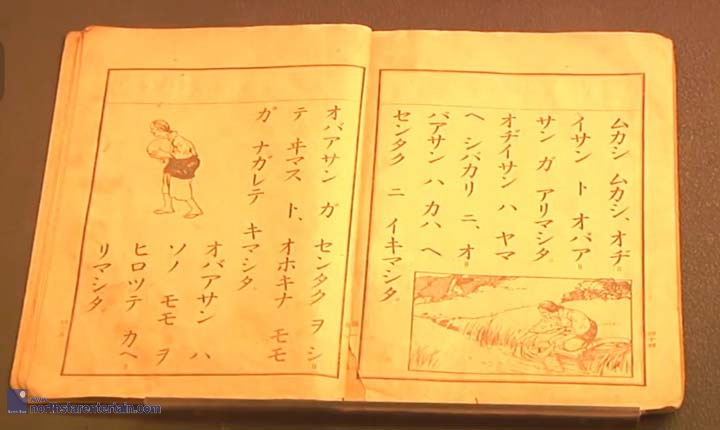 ムカシ ムカシ、オヂ
イサン ト オバア
サン ガ アリマシタ
オヂイサン ハ ヤマ
ヘ シバカリ ニ、オ
バアサン ハ カハ ヘ
センタク ニ イキマシタ
オバアサン ガ センタク ヲ シ
テ ヰマス ト、オホキナ モモ
ガ ナガレテ キマシタ
オバアサン ハ
ソノ モモ ヲ
ヒロツテ カヘ
リマシタ
northstarentertain.com